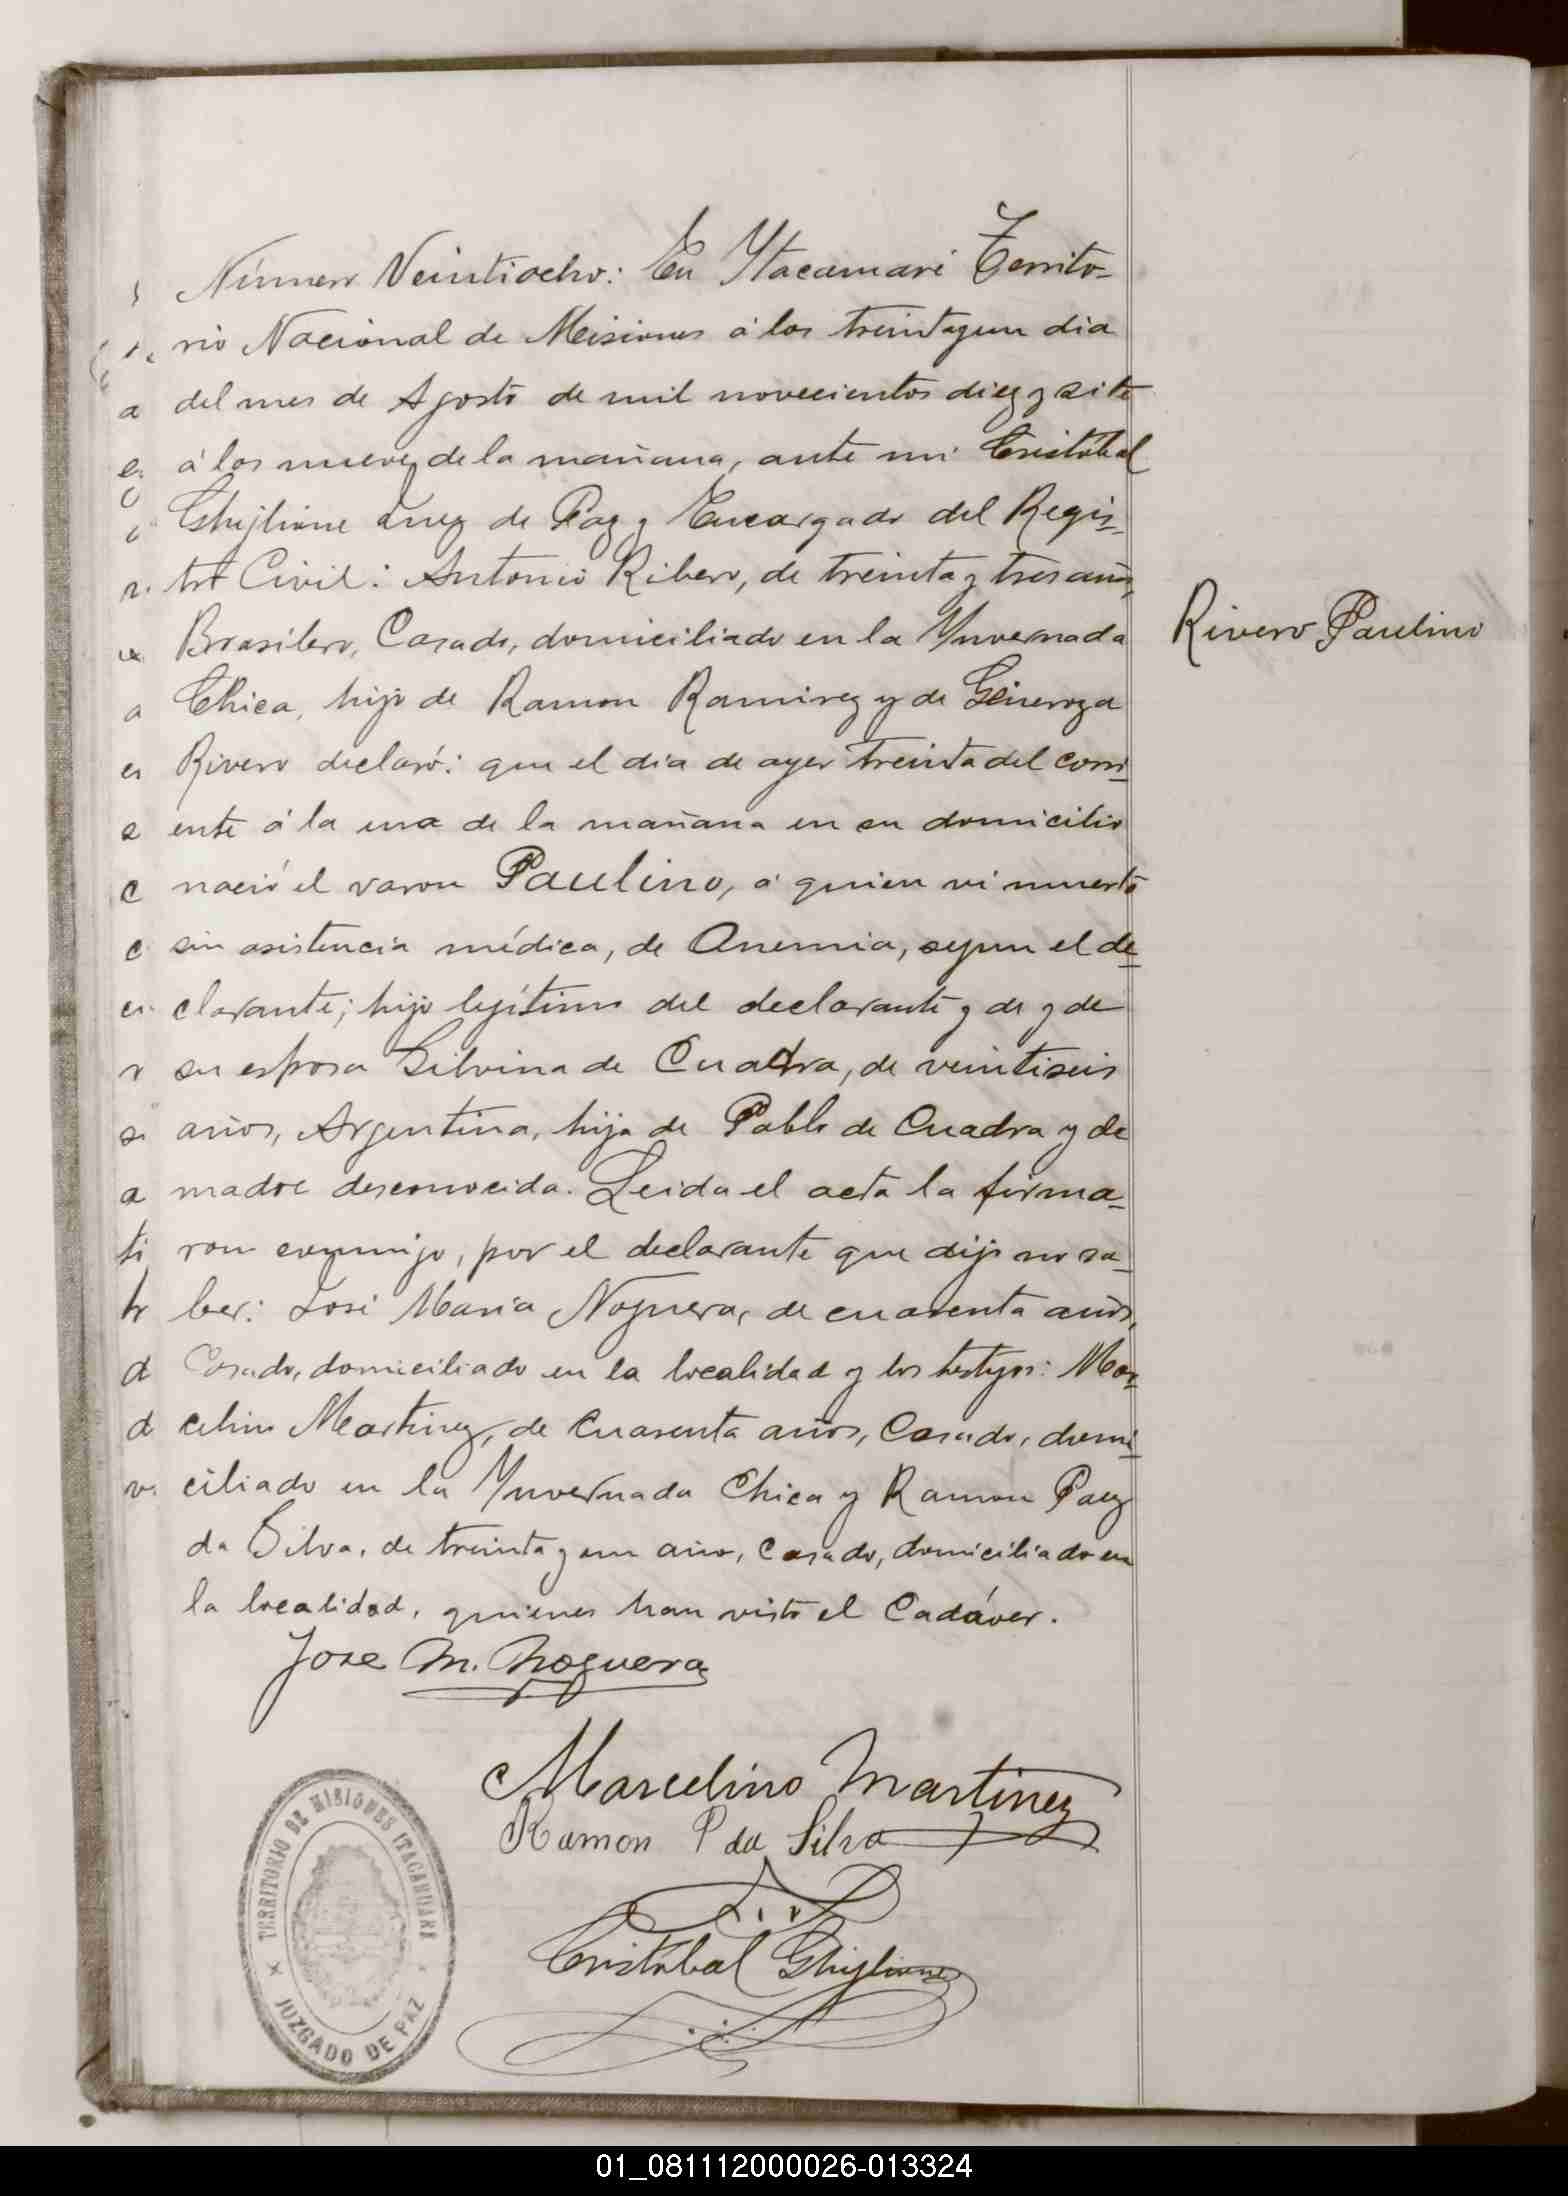 Número Veintiocho: En Ytacaruaré Territo-
rio Nacional de Misiones á los treintayun dia
del mes de Agosto de mil novecientos diez y siete
á los nueve de la mañana, ante mi Cristóbal
Ghiglione Juez de Paz y Encargado del Regis-
tro Civil: Antonio Ribero, de treinta y tres años,
Brasilero, Casado, domiciliado en la Ynvernada
Chica, hijo de Ramon Ramirez y de Gineroza
Rivero declaró: que el dia de ayer treinta del corri-
ente á la una de la mañana en su domicilio
nació el varon Paulino, á quien vi muerto
sin asistencia médica, de Anemia, segun el de-
clarante; hijo legítimo del declarante y de y de
su esposa Silvina de Cuadra, de veintiseis
años, Argentina, hija de Pablo de Cuadra y de
madre desconocida. Leida el acta la firma-
ron conmigo, por el declarante que dijo no sa-
ber: José Maria Noguera, de cuarenta años,
Casado, domiciliado en la localidad y los testigos: Mar-
celino Martinez, de cuarenta años, Casado, domi-
ciliado en la Ynvernada Chica y Ramon Paez
da Silva, de treinta y un año, Casado, domiciliado en
la localidad, quienes han visto el Cadáver.
Rivero Paulino
Jose M. Noguera
Marcelino Martinez
Ramon P da Silva
Cristóbal Ghiglione
TERRITORIO DE MISIONES ITACARUARE
JUZGADO DE PAZ
01_081112000026-013324